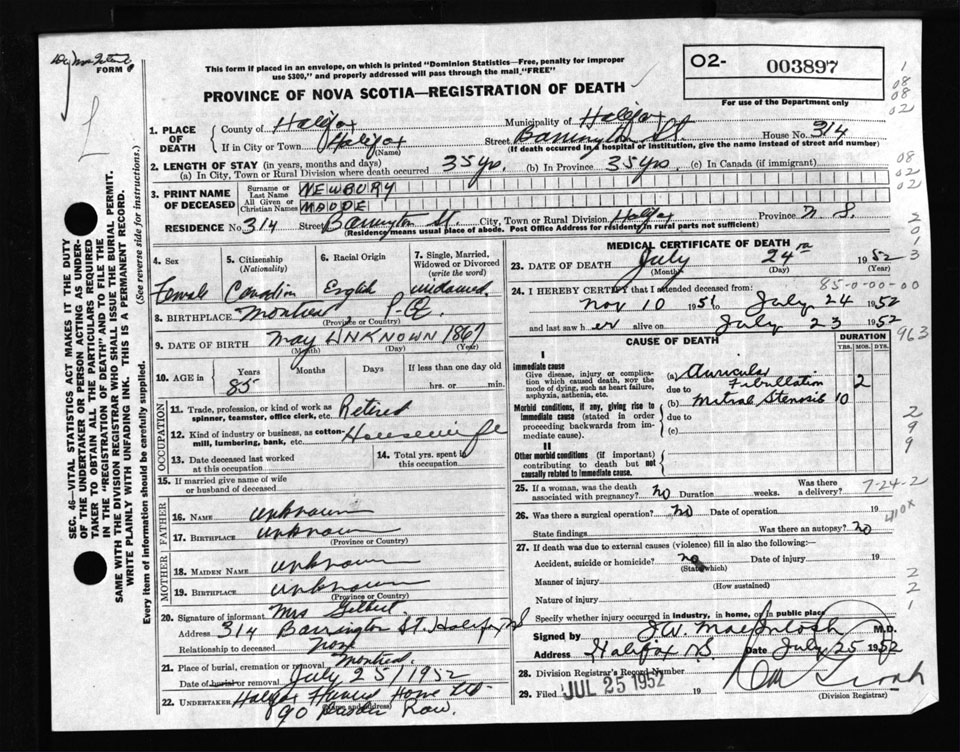 FORM
This form if placed in an envelope, on which is printed "Dominion Statistics—Free, penalty for improper
use $300," and properly addressed will pass through the mail "FREE"
PROVINCE OF NOVA SCOTIA—REGISTRATION OF DEATH
O2- 003897
For use of the Department only
1. PLACE OF DEATH
County of Halifax Municipality of Halifax
If in City or Town Halifax (Name) Street Barrington St House No. 314
(If death occurred in a hospital or institution, give the name instead of street and number)
2. LENGTH OF STAY (in years, months and days)
(a) In City, Town or Rural Division where death occurred 35 yrs. (b) In Province 35 yrs. (c) In Canada (if immigrant)
3. PRINT NAME OF DECEASED
Surname or Last Name NEWBURY
All Given or Christian Names MAUDE
RESIDENCE No. 314 Street Barrington St. City, Town or Rural Division Halifax Province N. S.
(Residency means usual place of abode. Post Office Address for residents in rural parts not sufficient)
4. Sex
Female
5. Citizenship (Nationality)
Canadian
6. Racial Origin
English
7. Single, Married, Widowed or Divorced (write the word)
widowed.
8. BIRTHPLACE Montreal P.Q.
(Province or Country)
9. DATE OF BIRTH May UNKNOWN 1867
(Month) (Day) (Year)
10. AGE in Years 85 Months Days If less than one day old
hrs. or min.
OCCUPATION
11. Trade, profession, or kind of work as spinner, teamster, office clerk, etc. Retired
12. Kind of industry or business, as cotton-mill, lumbering, bank, etc. Housewife
13. Date deceased last worked at this occupation
14. Total yrs. spent in this occupation
15. If married give name of wife or husband of deceased
FATHER
16. NAME unknown
17. BIRTHPLACE unknown
(Province or Country)
MOTHER
18. MAIDEN NAME unknown
19. BIRTHPLACE unknown
(Province or Country)
20. Signature of informant Mrs Gilbert
Address 314 Barrington St. Halifax NS
Relationship to deceased non
21. Place of burial, cremation or removal Montreal.
Date of burial or removal July 25/1952
22. UNDERTAKER Halifax Funeral Home Ltd.
(Name and address)
90 Row.
MEDICAL CERTIFICATE OF DEATH
23. DATE OF DEATH July 24 1952
(Month) (Day) (Year)
85-0-00-00
24. I HEREBY CERTIFY that I attended deceased from:
Nov 10 1951 to July 24 1952
and last saw her alive on July 23 1952
CAUSE OF DEATH
DURATION
YRS. MOS. DYS.
I
Immediate cause
Give disease, injury or complication which caused death, NOT the mode of dying, such as heart failure, asphyxia, asthenia, etc.
(a) Auricular Fibrillation 2
due to
(b) Mitral Stenosis 10
Morbid conditions, if any, giving rise to immediate cause (stated in order proceeding backwards from immediate cause).
due to
(c)
II
Other morbid conditions (if important) contributing to death but not causally related to immediate cause.
25. If a woman, was the death associated with pregnancy? no Duration weeks. Was there a delivery?
7-24-2
26. Was there a surgical operation? no Date of operation 19
410x
State findings Was there an autopsy? no
27. If death was due to external causes (violence) fill in also the following:
Accident, suicide or homicide? no Date of injury 19
(State which)
Manner of injury
(How sustained)
Nature of injury
Specify whether injury occurred in industry, in home, or in public place
Signed by J.W. MacIntosh M.D.
Address Halifax N.S. Date July 25 1952
28. Division Registrar's Record Number
29. Filed JUL 25 1952 19
(Division Registrar)
SEC. 46—VITAL STATISTICS ACT MAKES IT THE DUTY
OF THE UNDERTAKER OR PERSON ACTING AS UNDER-
TAKER TO OBTAIN ALL THE PARTICULARS REQUIRED
IN THE "REGISTRATION OF DEATH" AND TO FILE THE
SAME WITH THE DIVISION REGISTRAR WHO SHALL ISSUE THE BURIAL PERMIT.
WRITE PLAINLY WITH UNFADING INK. THIS IS A PERMANENT RECORD.
Every item of information should be carefully supplied. (See reverse side for instructions.)
1
08
08
02
08
02
02
2
0
1
3
963
2
9
9
2
2
1